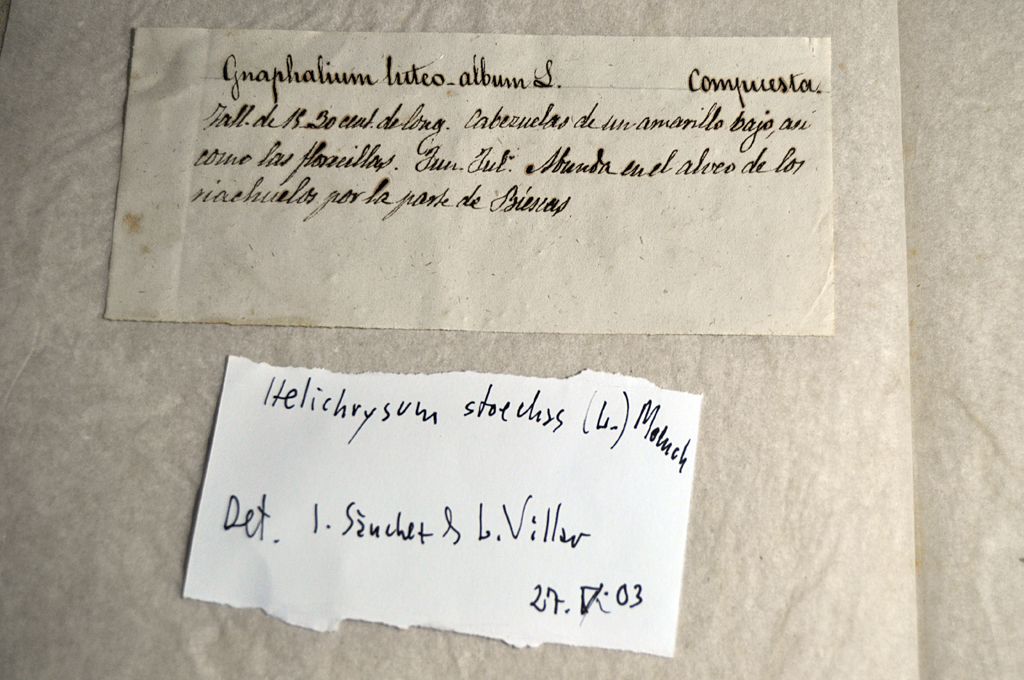 Gnaphalium luteo-album L. Compuesta.
Tall. de 15-30 cent. de long. Cabezuelas de un amarillo bajo, asi
como las florecillas. Jun. Jul. Abunda en el alveo de los
riachuelos por la parte de Biescas
Helichrysum stoechas (L.) Moench
Det. I. Sànchez & L. Villar
27. 03